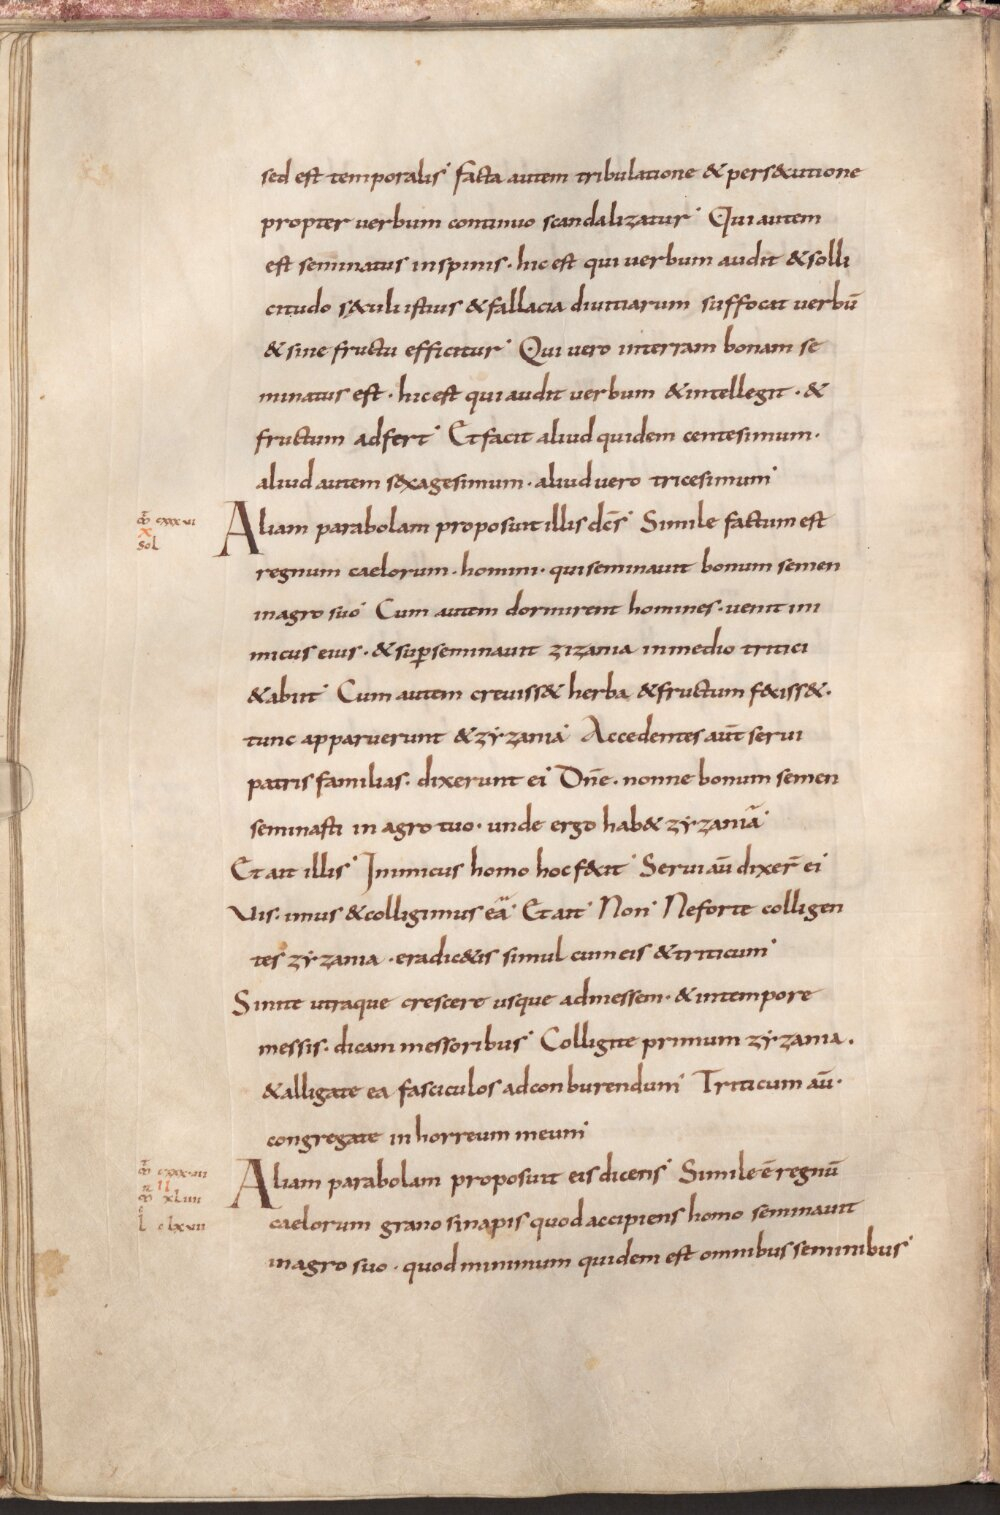 sed est temporalis· facta autem tribulatione & pers&utione
propter uerbum continuo scandalizatur· Qui autem
est seminatus inspinis· hic est qui uerbum audit & solli
citudo s&culi istius & fallacia diuitiarum suffocat uerbū
& sine fructu efficitur· Qui uero interram bonam se
minatus est· hic est qui audit uerbum & intellegit· &
fructum adfert· Et facit aliud quidem centesimum·
aliud autem sexagesimum· aliud uero tricesimum·
m̄ cxxxvi
X
sol
Aliam parabolam proposuit illis dcēs· Simile factum est
regnum caelorum· homini· qui seminauit bonum semen
inagro suo· Cum autem dormirent homines· uenit ini
micus eius· & suꝑseminauit zizania inmedio tritici
& abiit· Cum autem creuiss& herba & fructum feciss&·
tunc apparuerunt & zyzania· Accedentes aūt serui
patris familias· dixerunt ei· Dn̄e· nonne bonum semen
seminasti in agro tuo· unde ergo hab& zyzaniā·
Et ait illis· Inimicus homo hoc fecit· Serui aū dixer̄ ei
Uis· imus & colligimus eā· Et ait· Non· Neforte colligen
tes zyzania· eradic&is simul cum eis & triticum·
Sinite utraque crescere usque admessem· & intempore
messis· dicam messoribus· Colligite primum zyzania·
& alligate ea fasciculos adconburendum· Triticum aū·
congregate in horreum meum·
m̄ cxxxvii
II
m̄ xliiii
l clxvii
Aliam parabolam proposuit eis dicens· Simile ē regnū
caelorum grano sinapis quod accipiens homo seminauit
inagro suo· quod minimum quidem est omnibus seminibus·